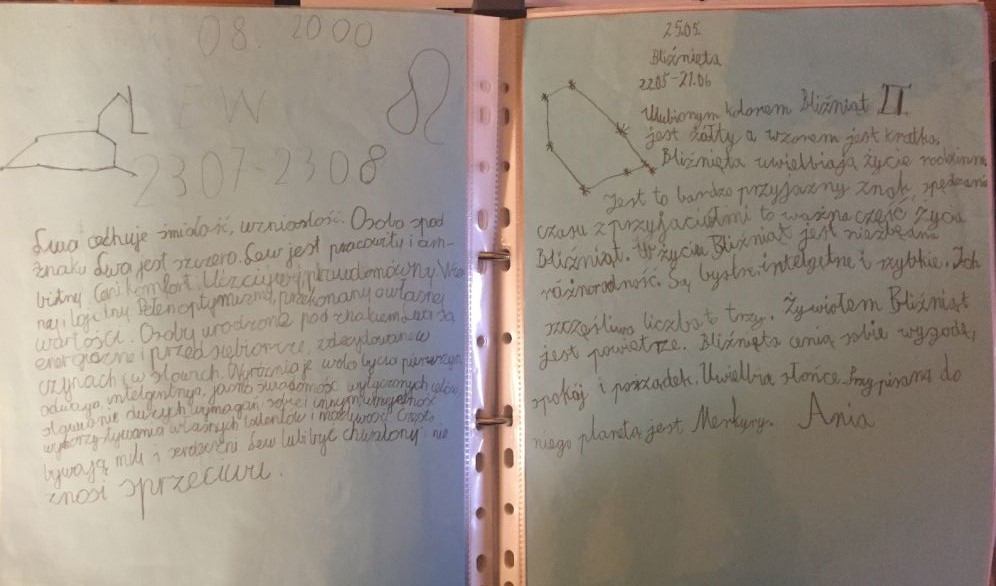 08. 2000
EW
2307-2308
Lwa cechuje śmiałość, wzniosłość. Osoba spod
znaku Lwa jest szczera. Lew jest pracowity i am-
bitny. Ceni komfort. Uczciwy i prawdomówny.
ny i logiczny. Pełen optymizmu, przekonany o własnej
wartości. Osoby urodzone pod znakiem Lwa są
energiczne i przedsiębiorcze, zdecydowane w
czynach i w słowach. Wyróżnia je wola bycia pierwszym,
odwaga, inteligentna, jasna świadomość wytyczonych celów,
stawianie dużych wymagań sobie i innym umiejętność
wykorzystywania własnych talentów i możliwości. Często
bywają mili i serdeczni Lew lubi być chwalony i nie
znosi sprzeciwu.
25.05
Bliźnięta
22.05-21.06
Ulubionym kolorem Bliźniąt II
jest żółty a wzorem jest kratka.
Bliźnięta uwielbiają życie rodzinne.
Jest to bardzo przyjazny znak, spędzanie
czasu z przyjaciółmi to ważna część życia
Bliźniąt. W życiu Bliźniąt jest niezbędna
różnorodność. Są bystre, inteligetne i szybkie. Ich
szczęśliwa liczba to trzy. Żywiołem Bliźniąt
jest powietrze. Bliźnięta cenią sobie wygodę,
spokój i porządek. Uwielbia słońce. Przypisaną do
niego planetą jest Merkury. Ania